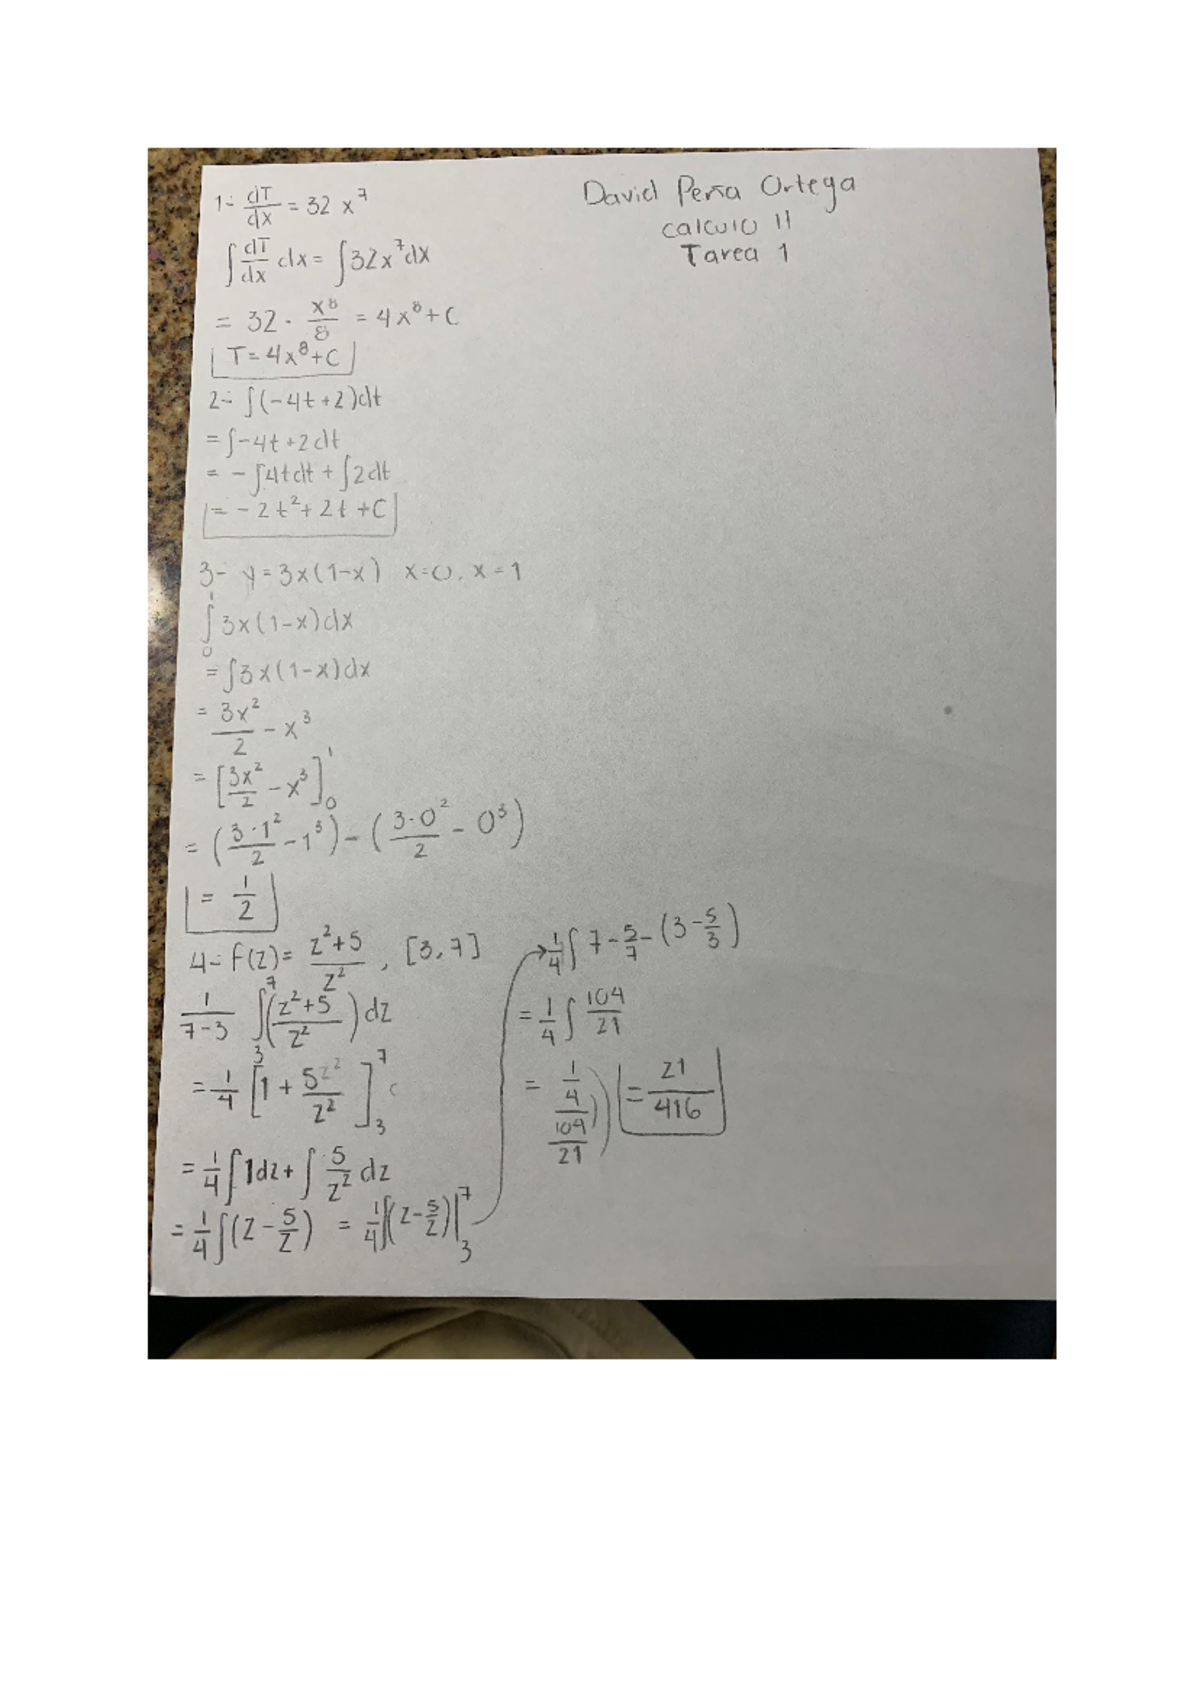 David Peña Ortega
Calculo II
Tarea 1
1- dT/dx = 32 x^7
∫ dT/dx dx = ∫ 32x^7 dx
= 32 · x^8/8 = 4x^8 + C
T = 4x^8 + C
2- ∫(-4t + 2)dt
= ∫-4t + 2 dt
= - ∫4t dt + ∫2 dt
= - 2t^2 + 2t + C
3- y = 3x(1-x) x=0, x=1
∫_0^1 3x(1-x)dx
= ∫3x(1-x)dx
= 3x^2/2 - x^3
= [3x^2/2 - x^3]_0^1
= (3·1^2/2 - 1^3) - (3·0^2/2 - 0^3)
= 1/2
4- f(z) = z^2+5/z^2, [3,7]
1/7-3 ∫_3^7 (z^2+5/z^2) dz
= 1/4 [1 + 5z^2/z^2]_3^7
= 1/4 ∫1dz + ∫ 5/z^2 dz
= 1/4 ∫(z - 5/z) = 1/4 ∫(z - 5/z)|_3^7
→ 1/4 ∫ 7 - 5/7 - (3 - 5/3)
= 1/4 ∫ 104/21
= 1/4 / 104/21 ) = 21/416